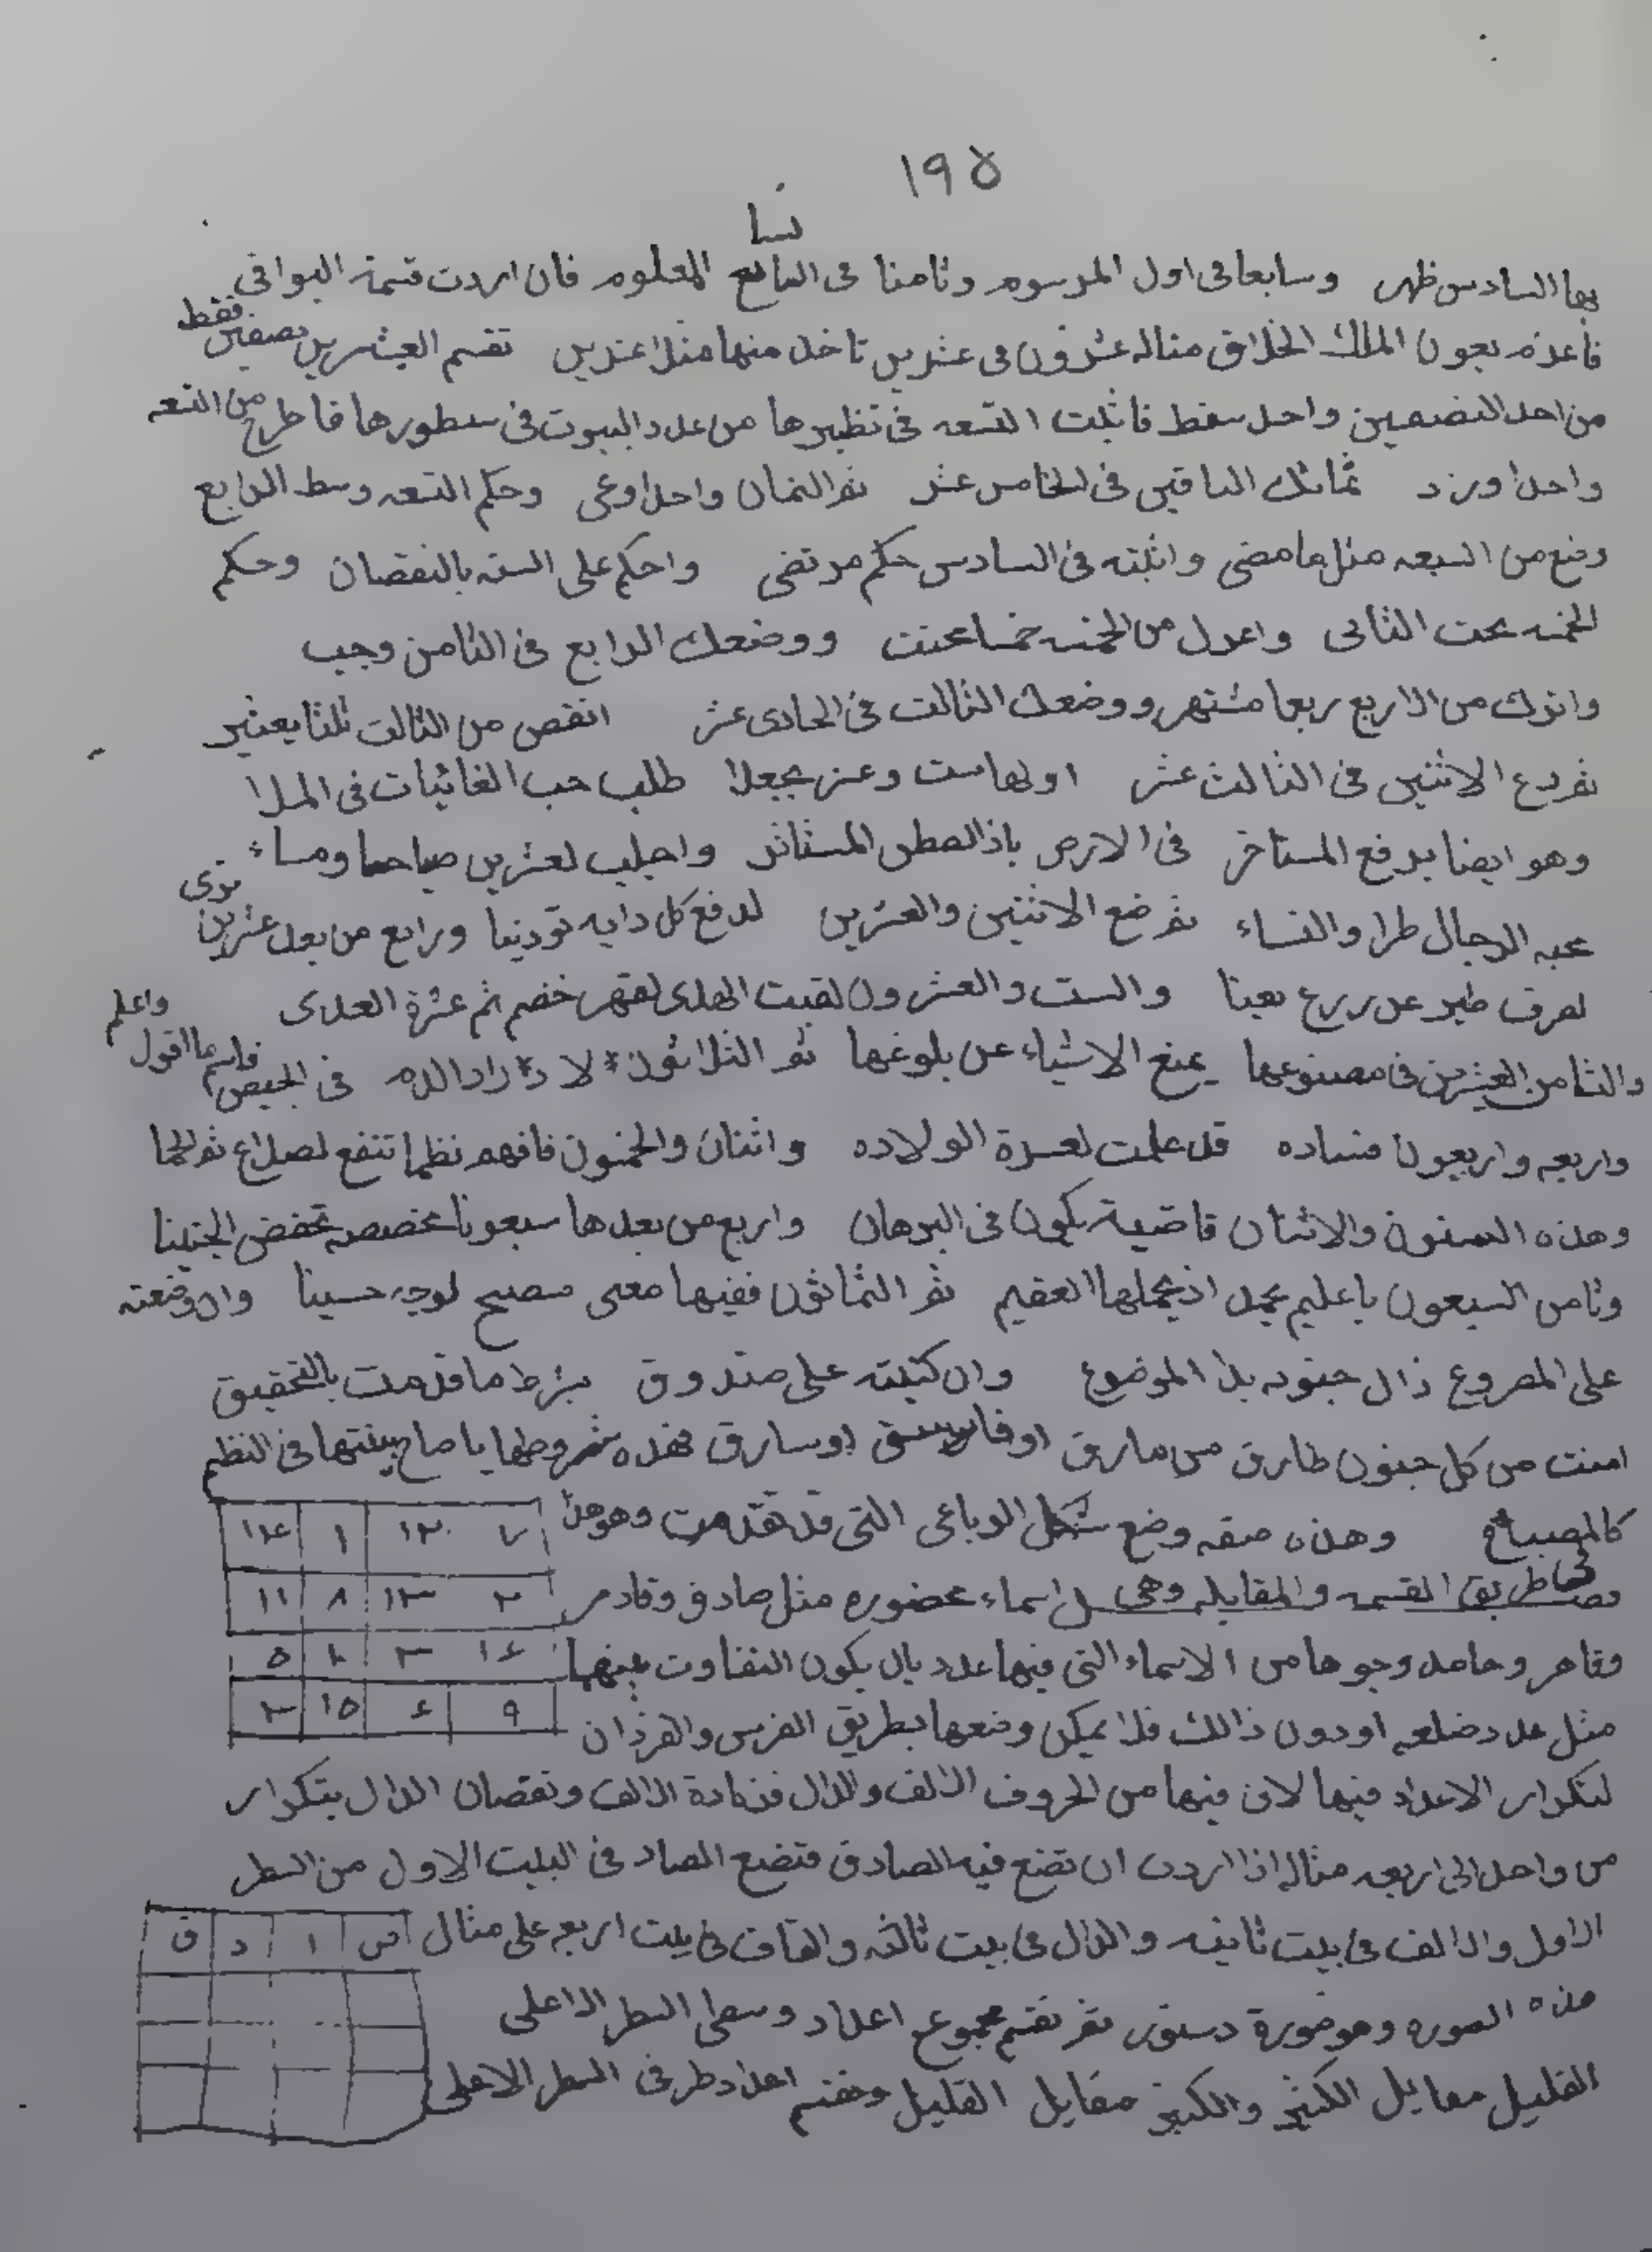 ١٩٥
بها السادس ظهر وسابعا فى اول المرسوم وثامنا فى المعلوم فان اردت قسمة البواقى
بعون الملك الخلاق مثاله عشرون فى عشرين تاخذ منها مثلا عشرين تقسم العشرين نصفين فقط
من احد النصفين واحد سقط فاثبت التسعه فى نظيرها من عدد البيوت فى سطورها فاطرح من التسعه
واحدا وزد الباقى فى الخامس عشر ثم الثمان واحدا وحكم التسعه وسط الرابع
وضع من السبعه مثل ما مضى واثبته فى السادس حكم مرتضى واحكم على السته بالنقصان وحكم
الخمسه تحت الثانى واعزل من الخمسه خمسا ووضعك الرابع فى الثامن وجب
واترك من الاربع ربعا مشتهر ووضعك الثالث فى الحادى عشر انقص من الثالث ثلثا
ثم دع الاثنين فى الثالث عشر اولها ست وعشر يجعلا طلب حب الغائبات فى الملا
وهو ايضا يدفع المستاخر فى الارض واجلب لعشرين صباحا ومساء
محبه الرجال طرا والنساء ثم ضع الاثنين والعشرين لدفع كل دابه توذينا ورابع من بعد عشرين ترى
لصرف طير عن زرع والست والعشرون لقيت الهدى لقهر خصم ثم عشرة العدى
والثامن العشرين فى مصنوعها يمنع الاشياء عن بلوغها ثم الثلاثون لا دراد الدم فى الحيض فاسمع ما اقول واعلم
واربعه واربعون قد علمت لعسرة الولاده واثنان والخمسون فافهم نظما تنفع لصداع ثم الحما
وهذه الستون والاثنان قاضية يكون فى البرهان واربع من بعدها سبعونا مخصصه تحفظ الجنينا
وثامن السبعون يا عليم يحمل اذ يحملها العقيم ثم الثمانون ففيها معنى لوجه حسينا وان وضعته
على المصروع زال جنونه بذا الموضوع وان كتبته على صندوق بشرط ما قدمت بالتحقيق
امنت من كل جنون طارق من مارق او فاسق او سارق فهذه شروطها يا صاح بينتها فى النظم
كالمصباح وهذه صفه وضع شكل الرباعى التى قد تقدمت وهو هذا
٧ ١٢ ١ ١٤
٢ ١٣ ٨ ١١
١٦ ٣ ١٠ ٥
٩ ٦ ١٥ ٤
طريق القسمه والمقابله وهى اسماء مثل صادق وقادر
وقاهر وحامد ونحوها من الاسماء التى فيها عدد بان يكون التفاوت بينهما
مثل عدد ضلعه او دون ذالك فلا يمكن وضعها بطريق الفرس والفرزان
لتكرار الاعداد فيها لان فيها من الحروف الالف والدال فزيادة الالف ونقصان الدال بتكرار
من واحد الى اربعه مثاله اذا اردت ان تضع فيه الصادق فتضع الصاد فى البيت الاول من السطر
الاول والالف فى بيت ثانيه والدال فى بيت ثالثه والقاف فى بيت اربعه على مثال
ص ا د ق
هذه الصوره وهو صورة دستور ثم تقسم مجموع اعداد وسطى السطر الاعلى
القليل مقابل الكثير والكثير مقابل القليل وتقسم اعداد طرفى السطر الاعلى